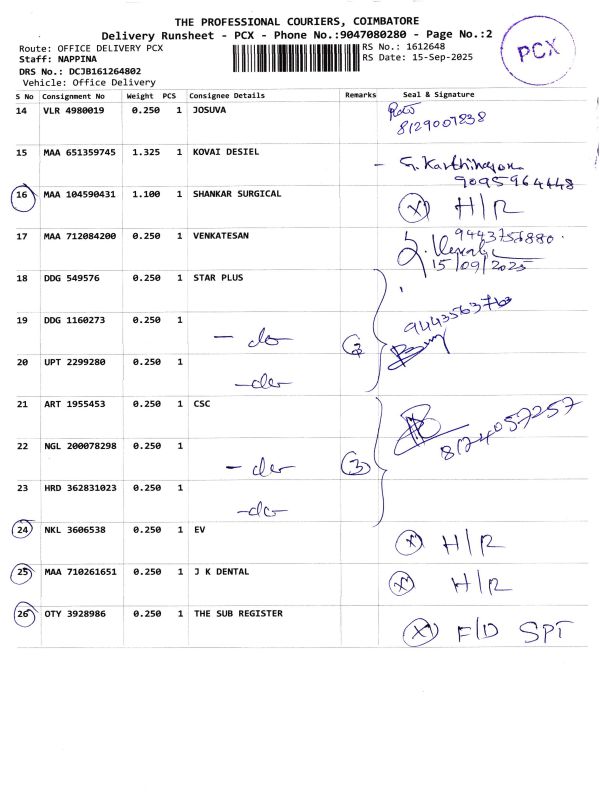 THE PROFESSIONAL COURIERS, COIMBATORE
Delivery Runsheet - PCX - Phone No.:9047080280 - Page No.:2
Route: OFFICE DELIVERY PCX
Staff: NAPPINA
DRS No.: DCJB161264802
Vehicle: Office Delivery
RS No.: 1612648
RS Date: 15-Sep-2025
PCX
S No Consignment No Weight PCS Consignee Details Remarks Seal & Signature
14 VLR 4980019 0.250 1 JOSUVA
8129007838
15 MAA 651359745 1.325 1 KOVAI DESIEL
- G. Karthikeyan
9095964448
16 MAA 104590431 1.100 1 SHANKAR SURGICAL X H/R
17 MAA 712084200 0.250 1 VENKATESAN
9443757880.
15/09/2025
18 DDG 549576 0.250 1 STAR PLUS
19 DDG 1160273 0.250 1 - do 3
20 UPT 2299280 0.250 1 - do
21 ART 1955453 0.250 1 CSC
8124057257
22 NGL 200078298 0.250 1 - do 3
23 HRD 362831023 0.250 1 - do
24 NKL 3606538 0.250 1 EV X H/R
25 MAA 710261651 0.250 1 J K DENTAL X H/R
26 OTY 3928986 0.250 1 THE SUB REGISTER X F/D SPT